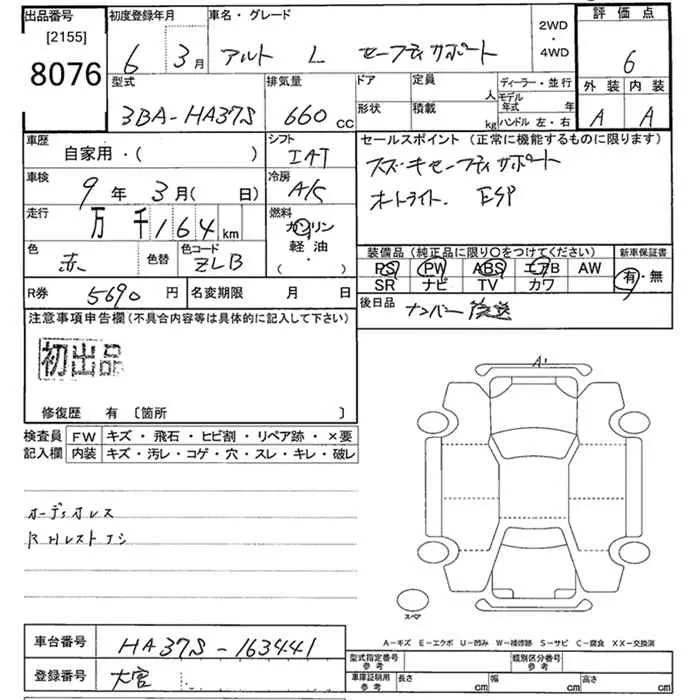 出品番号
[2155]
8076
初度登録年月
6 3月
車名・グレード
アルト L セーフティサポート
2WD
・
4WD
評価点
6
外装 内装
A A
型式
3BA-HA37S
排気量
660 CC
ドア
形状
定員 人
積載 kg
ディーラー・並行
モデル年式 年
ハンドル 左・右
車歴
自家用・( )
シフト
IAT
セールスポイント (正常に機能するものに限ります)
スズキセーフティサポート
オートライト. ESP
車検
9年 3月( 日)
冷房
A/C
走行
万 千 164 km
燃料
ガソリン
軽油
・( )
色
赤
色替
色コード
ZLB
装備品 (純正品に限り〇をつけてください)
PS PW ABS エアB AW
SR ナビ TV カワ
新車保証書
有・無
R券 5690 円
名変期限 月 日
後日品 ナンバー後送
注意事項申告欄 (不具合内容等は具体的に記入して下さい)
初出品
修復歴 有 〔箇所 〕
検査員記入欄
FW キズ・飛石・ヒビ割・リペア跡・×要
内装 キズ・汚レ・コゲ・穴・スレ・キレ・破レ
A1
オーディオレス
R Hレストナシ
スペア
A-キズ E-エクボ U-凹み W-補修跡 S-サビ C-腐食 XX-交換済
車台番号 HA37S-163441
登録番号 大宮
型式指定番号 参考
類別区分番号 参考
車庫証明用 参考
長さ cm 幅 cm 高さ cm